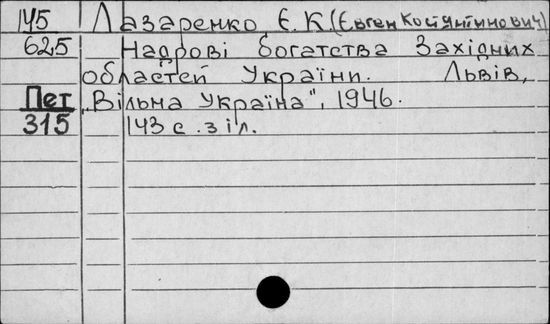 145 Лазаренко Є. К. (Євген Костянтинович)
625 Надрові богатства Західних
областей України. Львів,
Пет „Вільна Україна", 1946.
315 143 с. з іл.